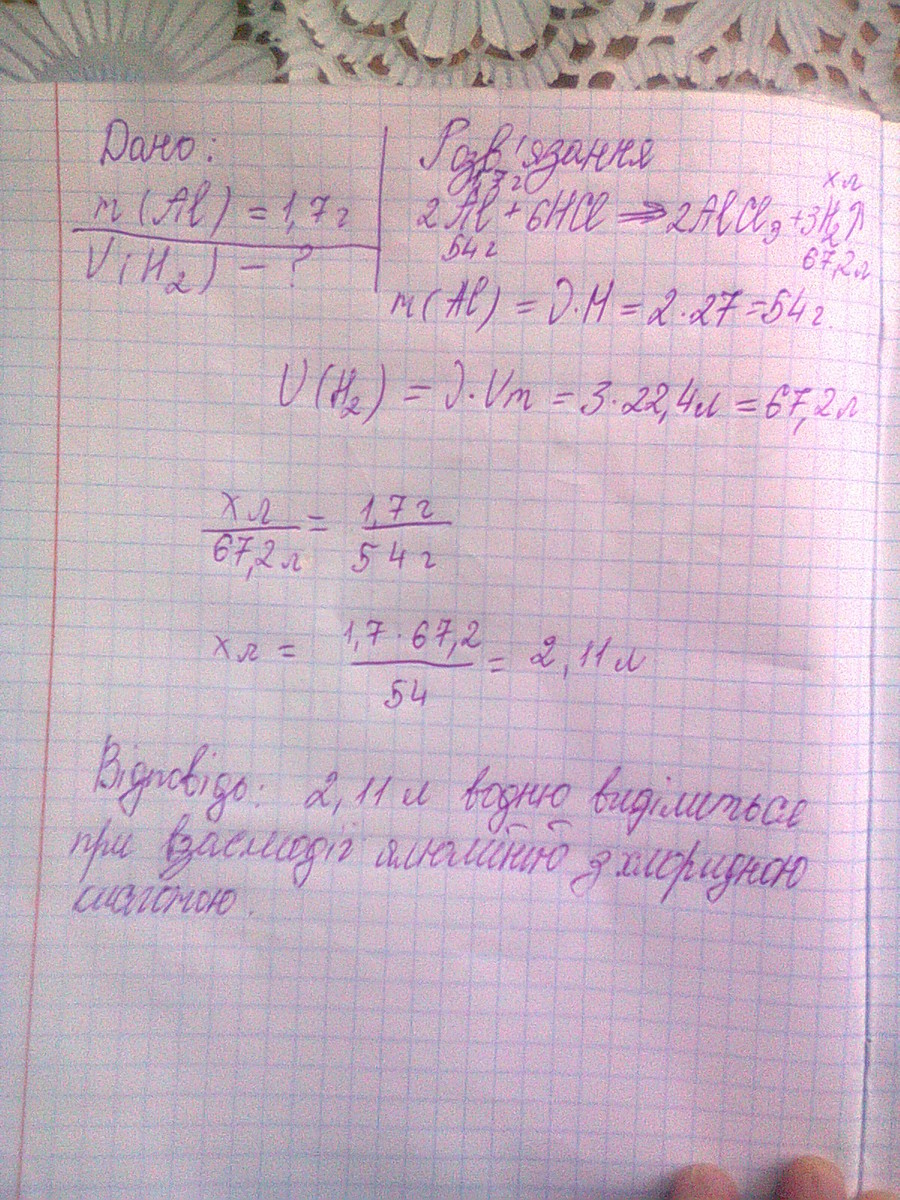 Дано:
m (Al) = 1,7 г
V (H₂) – ?
Розв'язання
1,7 г
x л
2Al + 6HCl ⇒ 2AlCl₃ + 3H₂↑
54 г
67,2 л
m (Al) = ν·M = 2·27 = 54 г.
V (H₂) = ν·Vm = 3·22,4 л = 67,2 л
x л / 67,2 л = 1,7 г / 54 г
x л = 1,7·67,2 / 54 = 2,11 л
Відповідь: 2,11 л водню виділиться
при взаємодії алюмінію з хлоридною
кислотою.